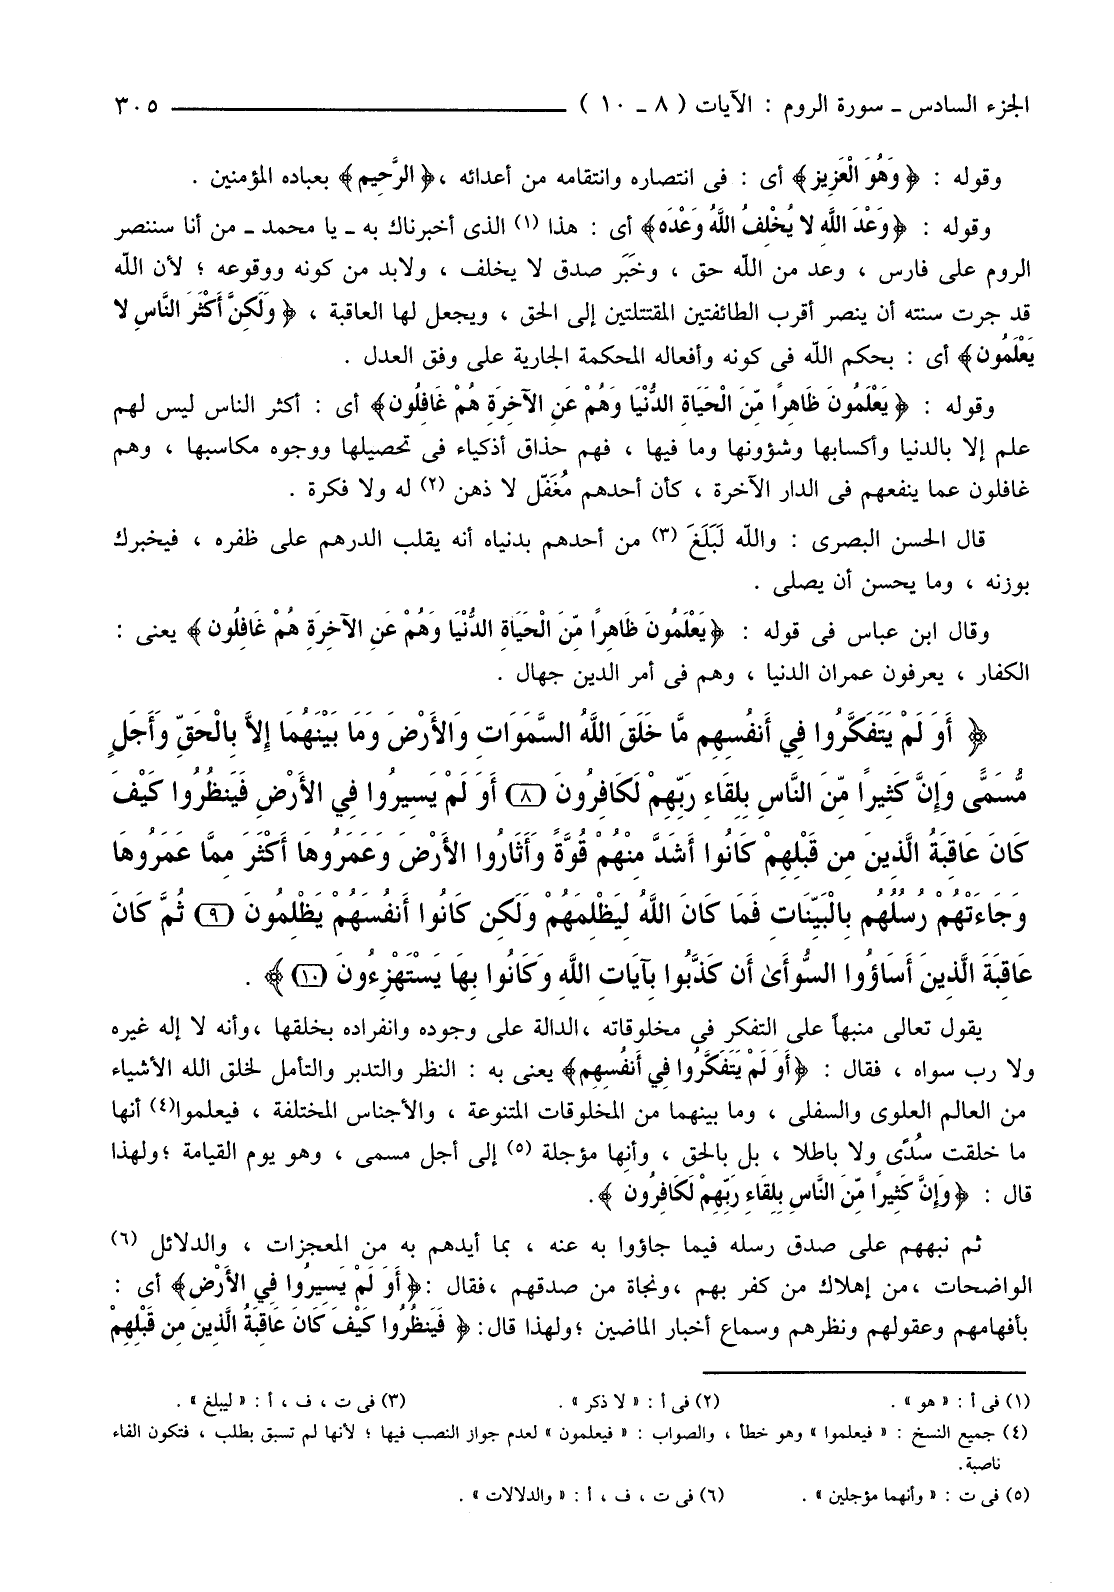 الجزء السادس ـ سورة الروم : الآيات ( ٨ ـ ١٠ ) ٣٠٥
وقوله : ﴿ وَهُوَ الْعَزِيز ﴾ أى : فى انتصاره وانتقامه من أعدائه ، ﴿ الرَّحِيم ﴾ بعباده المؤمنين .
وقوله : ﴿ وَعْدَ اللَّهِ لا يُخْلِفُ اللَّهُ وَعْدَه ﴾ أى : هذا (١) الذى أخبرناك به ـ يا محمد ـ من أنا سننصر
الروم على فارس ، وعد من اللّه حق ، وخَبَر صدق لا يخلف ، ولابد من كونه ووقوعه ؛ لأن اللّه
قد جرت سنته أن ينصر أقرب الطائفتين المقتتلتين إلى الحق ، ويجعل لها العاقبة ، ﴿ وَلَكِنَّ أَكْثَرَ النَّاسِ لا
يَعْلَمُون ﴾ أى : بحكم اللّه فى كونه وأفعاله المحكمة الجارية على وفق العدل .
وقوله : ﴿ يَعْلَمُونَ ظَاهِراً مِّنَ الْحَيَاةِ الدُّنْيَا وَهُمْ عَنِ الآخِرَةِ هُمْ غَافِلُون ﴾ أى : أكثر الناس ليس لهم
علم إلا بالدنيا وأكسابها وشؤونها وما فيها ، فهم حذاق أذكياء فى تحصيلها ووجوه مكاسبها ، وهم
غافلون عما ينفعهم فى الدار الآخرة ، كأن أحدهم مُغَفّل لا ذهن (٢) له ولا فكرة .
قال الحسن البصرى : واللّه لَبَلَغَ (٣) من أحدهم بدنياه أنه يقلب الدرهم على ظفره ، فيخبرك
بوزنه ، وما يحسن أن يصلى .
وقال ابن عباس فى قوله : ﴿ يَعْلَمُونَ ظَاهِراً مِّنَ الْحَيَاةِ الدُّنْيَا وَهُمْ عَنِ الآخِرَةِ هُمْ غَافِلُون ﴾ يعنى :
الكفار ، يعرفون عمران الدنيا ، وهم فى أمر الدين جهال .
﴿ أَوَ لَمْ يَتَفَكَّرُوا فِي أَنفُسِهِم مَّا خَلَقَ اللَّهُ السَّمَوَاتِ وَالأَرْضَ وَمَا بَيْنَهُمَا إِلاَّ بِالْحَقِّ وَأَجَلٍ
مُّسَمًّى وَإِنَّ كَثِيراً مِّنَ النَّاسِ بِلِقَاءِ رَبِّهِمْ لَكَافِرُونَ (٨) أَوَ لَمْ يَسِيرُوا فِي الأَرْضِ فَيَنظُرُوا كَيْفَ
كَانَ عَاقِبَةُ الَّذِينَ مِن قَبْلِهِمْ كَانُوا أَشَدَّ مِنْهُمْ قُوَّةً وَأَثَارُوا الأَرْضَ وَعَمَرُوهَا أَكْثَرَ مِمَّا عَمَرُوهَا
وَجَاءَتْهُمْ رُسُلُهُم بِالْبَيِّنَاتِ فَمَا كَانَ اللَّهُ لِيَظْلِمَهُمْ وَلَكِن كَانُوا أَنفُسَهُمْ يَظْلِمُونَ (٩) ثُمَّ كَانَ
عَاقِبَةَ الَّذِينَ أَسَاؤُوا السُّوأَىٰ أَن كَذَّبُوا بِآيَاتِ اللَّهِ وَكَانُوا بِهَا يَسْتَهْزِءُونَ (١٠) ﴾ .
يقول تعالى منبهاً على التفكر فى مخلوقاته ،الدالة على وجوده وانفراده بخلقها ،وأنه لا إله غيره
ولا رب سواه ، فقال : ﴿ أَوَ لَمْ يَتَفَكَّرُوا فِي أَنفُسِهِم ﴾ يعنى به : النظر والتدبر والتأمل لخلق الله الأشياء
من العالم العلوى والسفلى ، وما بينهما من المخلوقات المتنوعة ، والأجناس المختلفة ، فيعلموا(٤) أنها
ما خلقت سُدًى ولا باطلا ، بل بالحق ، وأنها مؤجلة (٥) إلى أجل مسمى ، وهو يوم القيامة ؛ولهذا
قال : ﴿ وَإِنَّ كَثِيراً مِّنَ النَّاسِ بِلِقَاءِ رَبِّهِمْ لَكَافِرُون ﴾.
ثم نبههم على صدق رسله فيما جاؤوا به عنه ، بما أيدهم به من المعجزات ، والدلائل (٦)
الواضحات ،من إهلاك من كفر بهم ،ونجاة من صدقهم ،فقال : ﴿ أَوَ لَمْ يَسِيرُوا فِي الأَرْض ﴾ أى :
بأفهامهم وعقولهم ونظرهم وسماع أخبار الماضين ؛ولهذا قال: ﴿ فَيَنظُرُوا كَيْفَ كَانَ عَاقِبَةُ الَّذِينَ مِن قَبْلِهِمْ
(١) فى أ : « هو » . (٢) فى أ : « لا ذكر » . (٣) فى ت ، ف ، أ : « ليبلغ » .
(٤) جميع النسخ : « فيعلموا » وهو خطأ ، والصواب : « فيعلمون » لعدم جواز النصب فيها ؛ لأنها لم تسبق بطلب ، فتكون الفاء
ناصبة.
(٥) فى ت : « وأنهما مؤجلين » . (٦) فى ت ، ف ، أ : « والدلالات » .